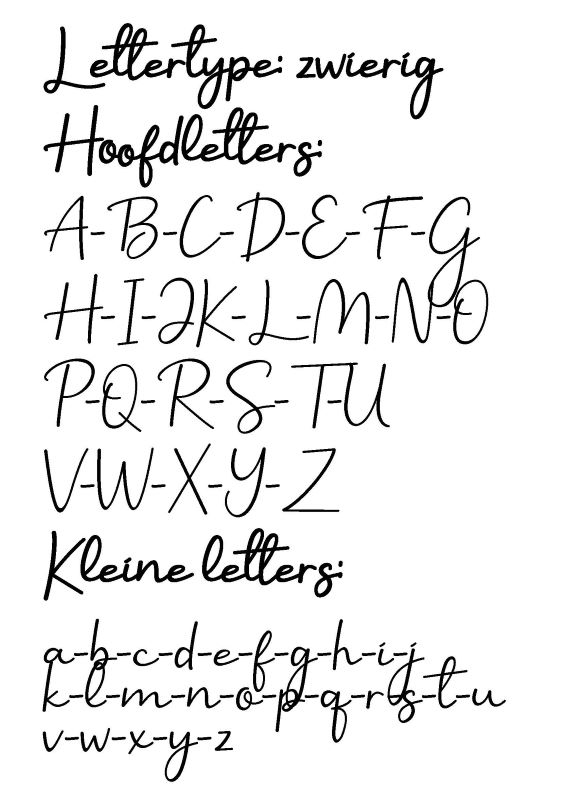 Lettertype: zwierig
Hoofdletters:
A-B-C-D-E-F-G
H-I-J-K-L-M-N-O
P-Q-R-S-T-U
V-W-X-Y-Z
Kleine letters:
a-b-c-d-e-f-g-h-i-j
k-l-m-n-o-p-q-r-s-t-u
v-w-x-y-z